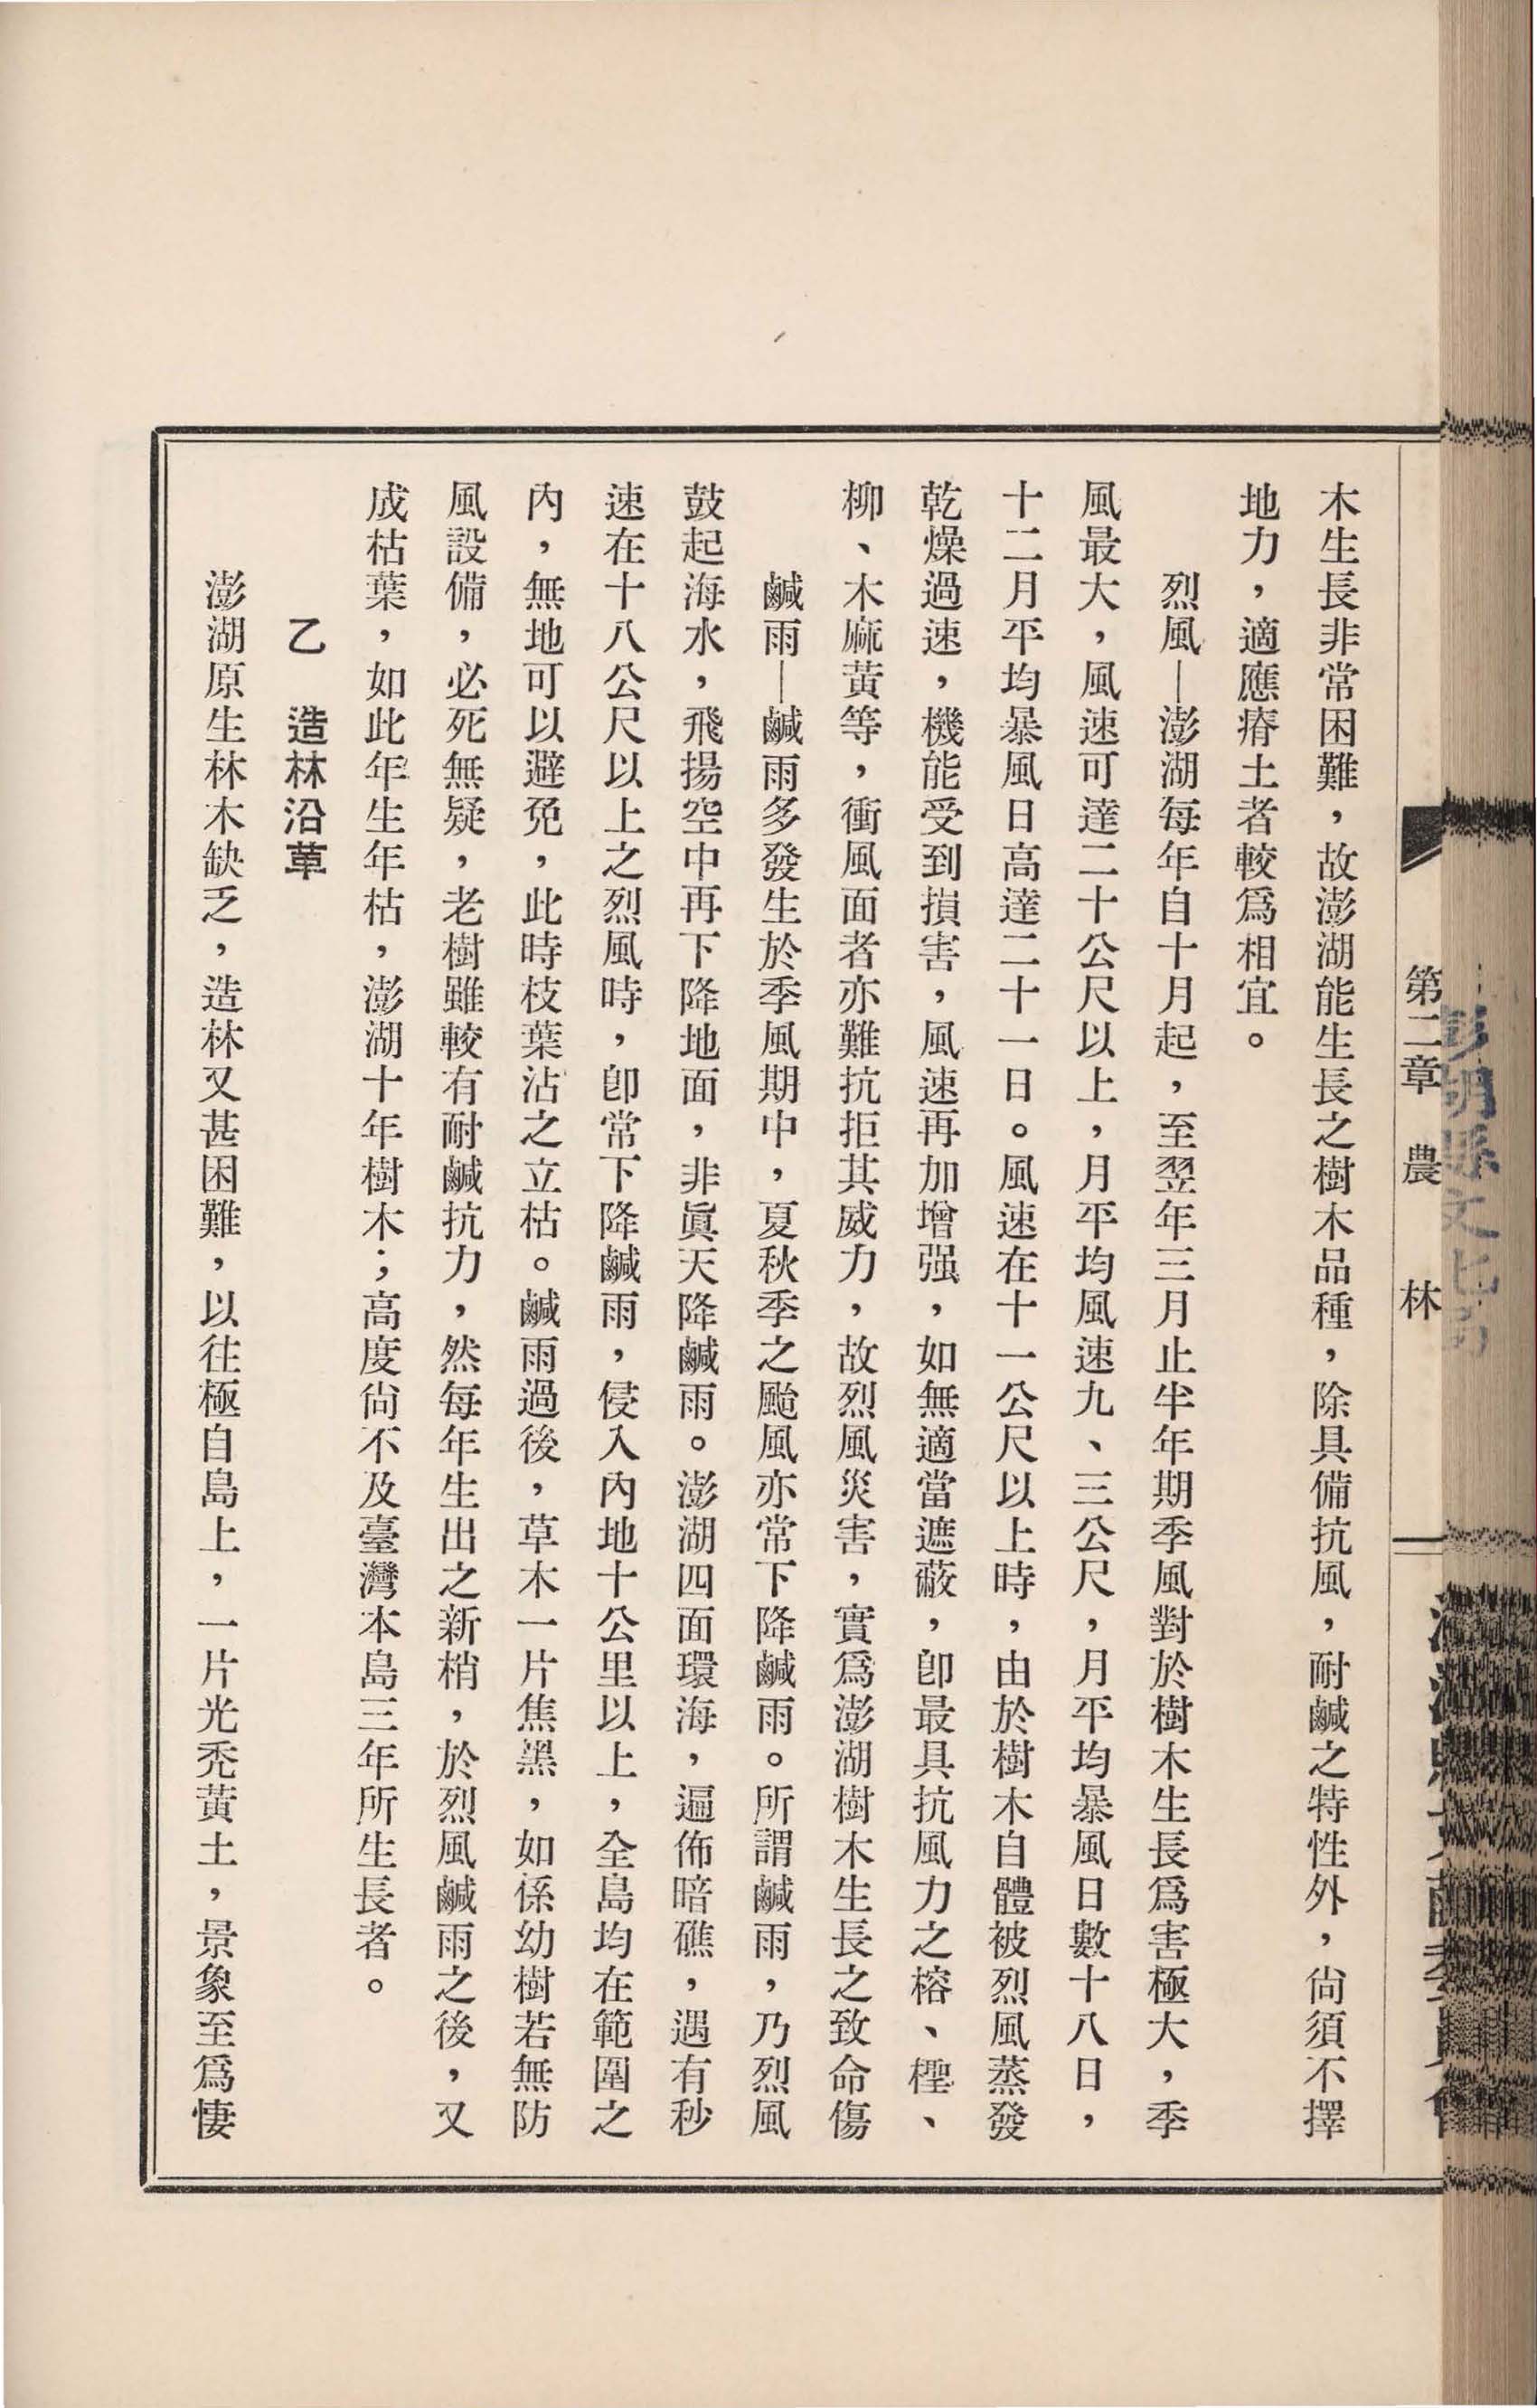 第二章　農　林
木生長非常困難，故澎湖能生長之樹木品種，除具備抗風，耐鹹之特性外，尙須不擇
地力，適應瘠土者較爲相宜。
烈風—澎湖每年自十月起，至翌年三月止半年期季風對於樹木生長爲害極大，季
風最大，風速可達二十公尺以上，月平均風速九、三公尺，月平均暴風日數十八日，
十二月平均暴風日高達二十一日。風速在十一公尺以上時，由於樹木自體被烈風蒸發
乾燥過速，機能受到損害，風速再加增强，如無適當遮蔽，卽最具抗風力之榕、檉、
柳、木麻黃等，衝風面者亦難抗拒其威力，故烈風災害，實爲澎湖樹木生長之致命傷
鹹雨—鹹雨多發生於季風期中，夏秋季之颱風亦常下降鹹雨。所謂鹹雨，乃烈風
鼓起海水，飛揚空中再下降地面，非眞天降鹹雨。澎湖四面環海，遍佈暗礁，遇有秒
速在十八公尺以上之烈風時，卽常下降鹹雨，侵入內地十公里以上，全島均在範圍之
內，無地可以避免，此時枝葉沾之立枯。鹹雨過後，草木一片焦黑，如係幼樹若無防
風設備，必死無疑，老樹雖較有耐鹹抗力，然每年生出之新梢，於烈風鹹雨之後，又
成枯葉，如此年生年枯，澎湖十年樹木；高度尙不及臺灣本島三年所生長者。
乙　造林沿革
澎湖原生林木缺乏，造林又甚困難，以往極自島上，一片光禿黃土，景象至爲悽